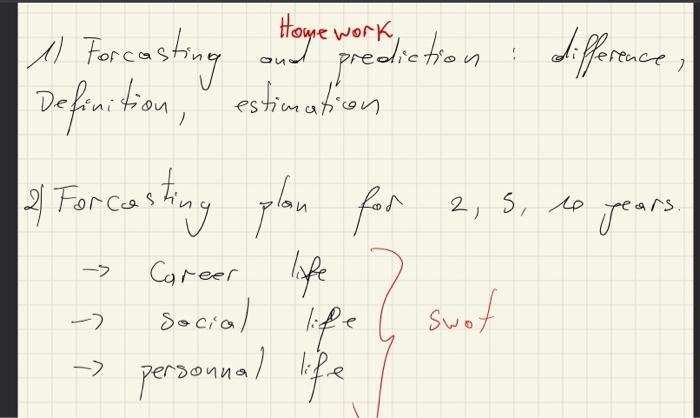 Homework
1) Forcasting and prediction : difference,
Definition, estimation
2) Forcasting plan for 2, 5, 10 years.
-> Career life
-> social life
-> personnal life
swot